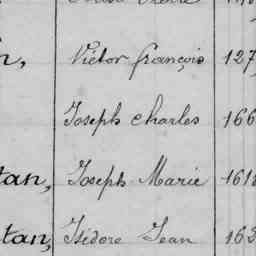 Victor françois 127
Joseph charles 166
tan, Joseph Marie 1618
tan, Isidore Jean 163